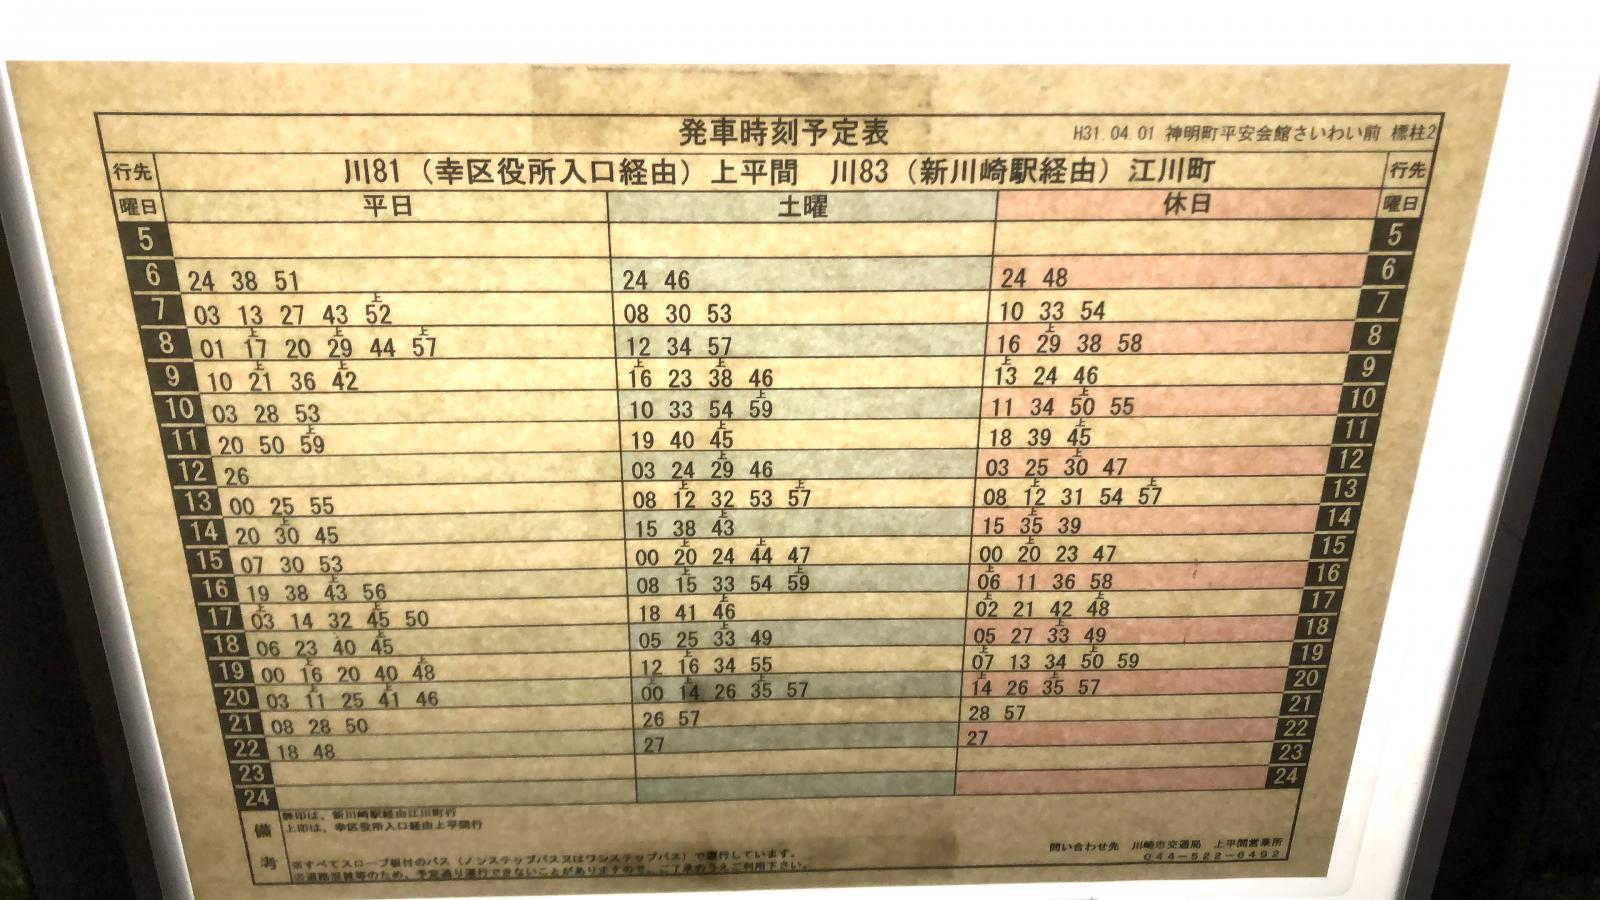 発車時刻予定表
H31.04.01 神明町平安会館さいわい前 標柱2
行先 川81(幸区役所入口経由)上平間 川83(新川崎駅経由)江川町 行先
曜日 平日 土曜 休日 曜日
5 5
6 24 38 51 24 46 24 48 6
7 03 13 27 43 上52 08 30 53 10 33 54 7
8 01 上17 20 上29 44 上57 12 34 57 16 上29 38 58 8
9 10 上21 36 上42 上16 23 上38 46 上13 24 46 9
10 03 28 53 10 33 54 上59 11 34 上50 55 10
11 20 50 上59 19 40 上45 18 39 上45 11
12 26 03 24 上29 46 03 25 上30 47 12
13 00 25 55 08 上12 32 53 上57 08 上12 31 54 上57 13
14 20 上30 45 15 38 上43 15 上35 39 14
15 07 30 53 00 上20 24 上44 47 00 上20 23 47 15
16 19 38 上43 56 08 上15 33 54 上59 上06 11 36 58 16
17 上03 14 32 上45 50 18 41 上46 上02 21 42 上48 17
18 06 23 40 上45 05 25 上33 49 05 27 上33 49 18
19 00 上16 20 40 上48 12 上16 34 55 上07 13 34 上50 59 19
20 03 上11 25 上41 46 00 上14 26 上35 57 上14 26 上35 57 20
21 08 28 50 26 57 28 57 21
22 18 48 27 27 22
23 23
24 24
備考
無印は、新川崎駅経由江川町行
上印は、幸区役所入口経由上平間行
※すべてスロープ板付のバス(ノンステップバス又はワンステップバス)で運行しています。
※道路混雑等のため、予定通り運行できないことがありますので、ご了承のうえご利用下さい。
問い合わせ先 川崎市交通局 上平間営業所
044-522-6492